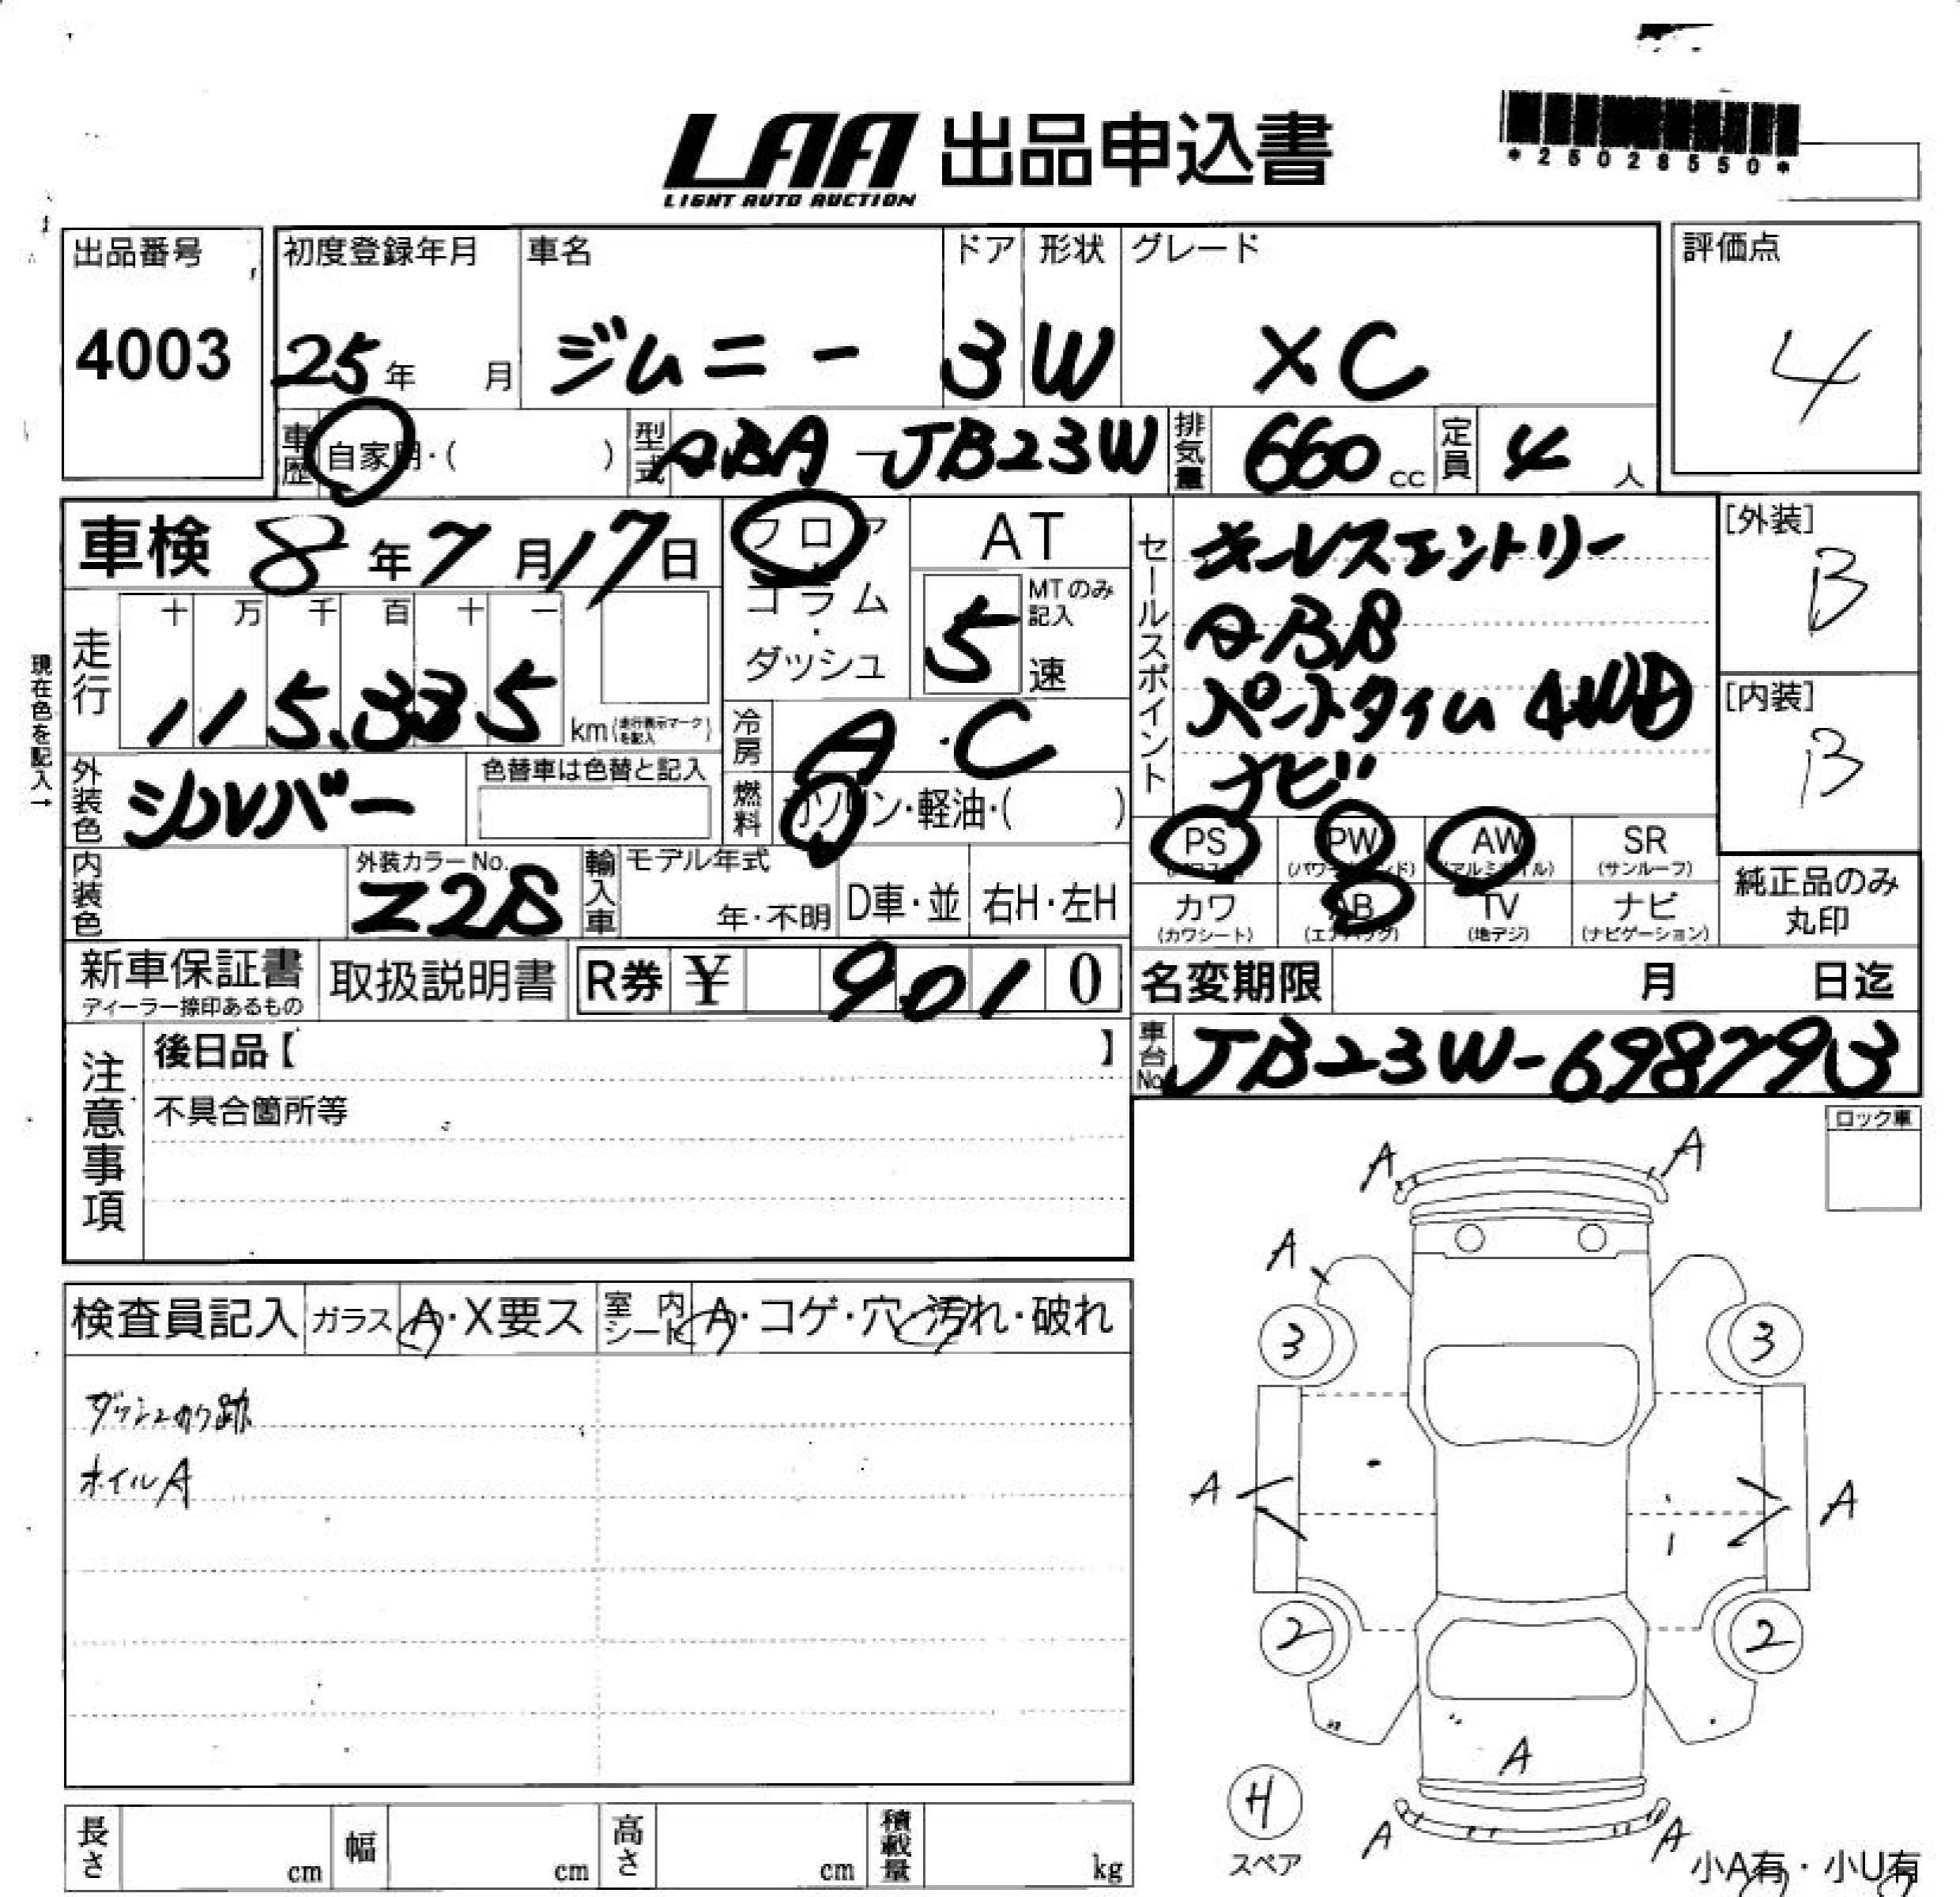 LAA 出品申込書
LIGHT AUTO AUCTION
*25028550*
出品番号
4003
初度登録年月
25年 月
車名
ジムニー
ドア
3
形状
W
グレード
XC
評価点
4
車歴 自家用・( )
型式 ABA-JB23W
排気量 660 cc
定員 4 人
車検 8年7月17日
フロア
コラム
・
ダッシュ
AT
5 速
MTのみ記入
セールスポイント
キーレスエントリー
ABS
パートタイム4WD
ナビ
[外装]
B
[内装]
B
現在色を記入→
走行
十 万 千 百 十 一
115,335 km(走行表示マークを記入)
冷房 A・C
外装色 シルバー
色替車は色替と記入
燃料 ガソリン・軽油・( )
PS (パワステ)
PW (パワーウィンド)
AW (アルミホイル)
SR (サンルーフ)
内装色
外装カラーNo.
Z2S
輸入車
モデル年式
年・不明
D車・並
右H・左H
カワ (カワシート)
AB (エアバッグ)
TV (地デジ)
ナビ (ナビゲーション)
純正品のみ
丸印
新車保証書
ディーラー捺印あるもの
取扱説明書
R券 ¥ 9010
名変期限 月 日迄
車台No. JB23W-698793
注意事項
後日品【 】
不具合箇所等
ロック車
検査員記入
ガラス A・X要ス
室内シート A・コゲ・穴・汚れ・破れ
ダッシュのり跡
ホイルA
A A
A
3 3
A A
2 2
A
H
スペア
A A
小A有・小U有
長さ cm
幅 cm
高さ cm
積載量 kg